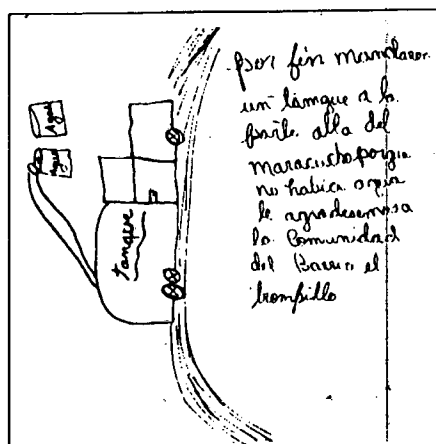 por fin mandaron
un tanque a la
parte alta del
maracucho porque
no habia agua
le agradesemos a
la Comunidad
del Barrio el
trompillo
Agua
Agua
tanque